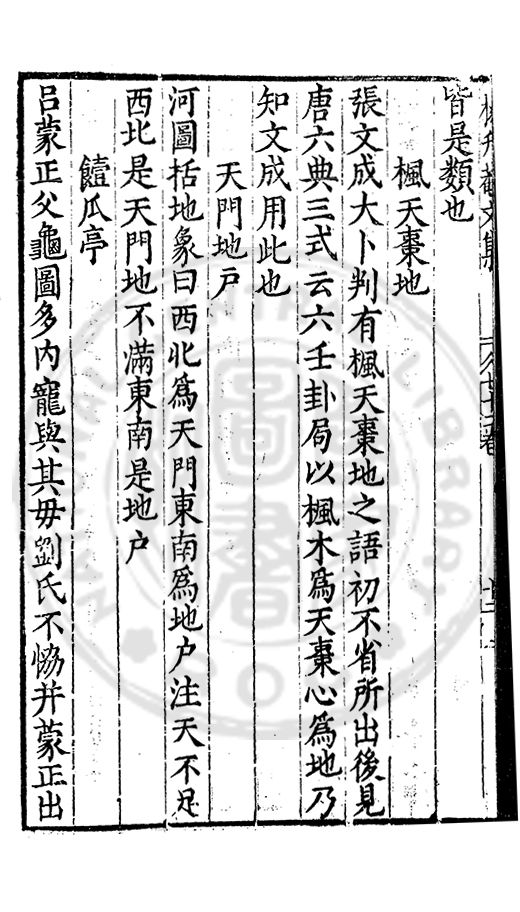 皆是類也
楓天棗地
張文成大卜判有楓天棗地之語初不省所出後見
唐六典三式云六壬卦局以楓木爲天棗心爲地乃
知文成用此也
天門地戶
河圖括地象曰西北爲天門東南爲地戶注天不足
西北是天門地不滿東南是地戶
饐瓜亭
呂蒙正父龜圖多內寵與其毋劉氏不恊并蒙正出